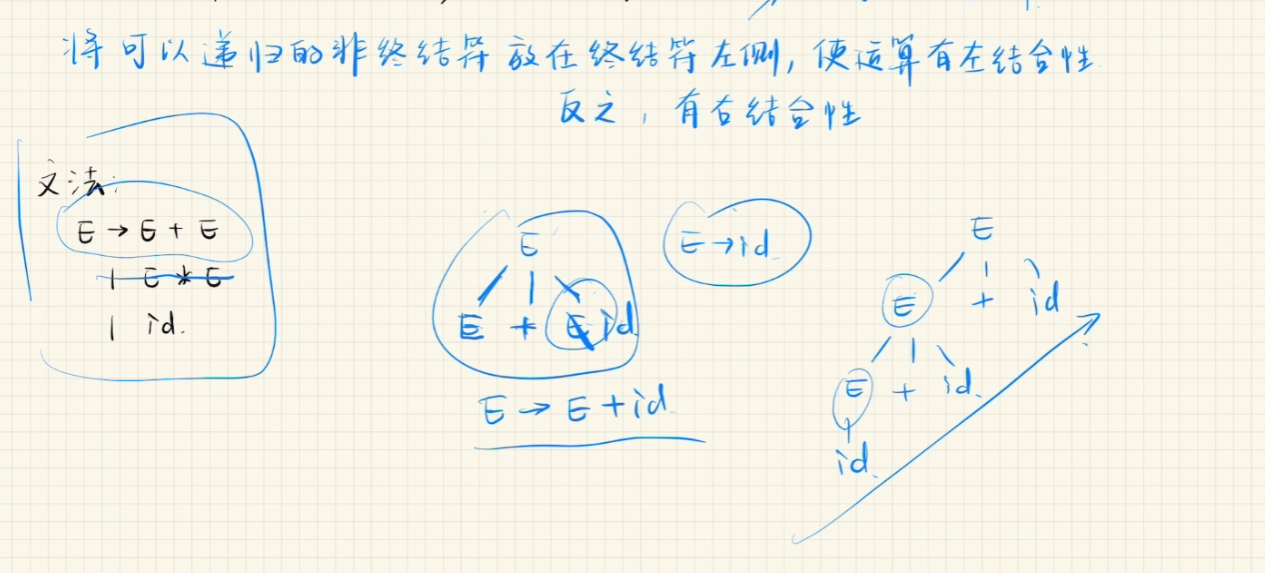 将可以递归的非终结符放在终结符左侧，使运算有左结合性
反之，有右结合性
文法：
E → E + E
| E * E
| id.
E
E + E id
E → E + id.
E → id.
E
E + id
E + id.
id.